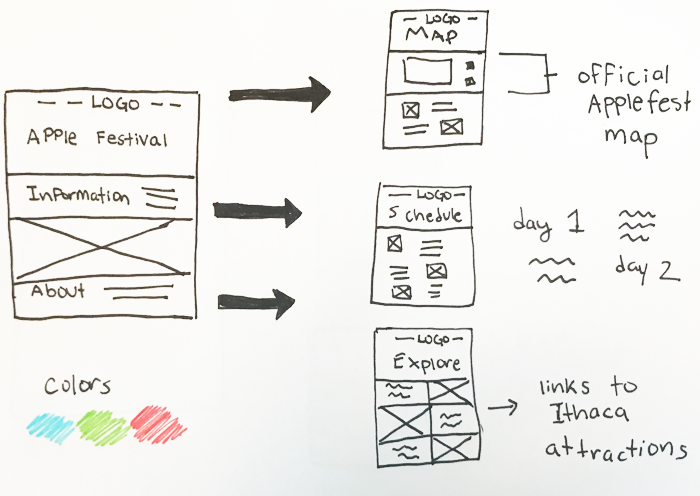 LOGO
APPle Festival
Information
About
Colors
LOGO
MAP
official
Applefest
map
LOGO
Schedule
day 1
day 2
LOGO
Explore
links to
Ithaca
attractions